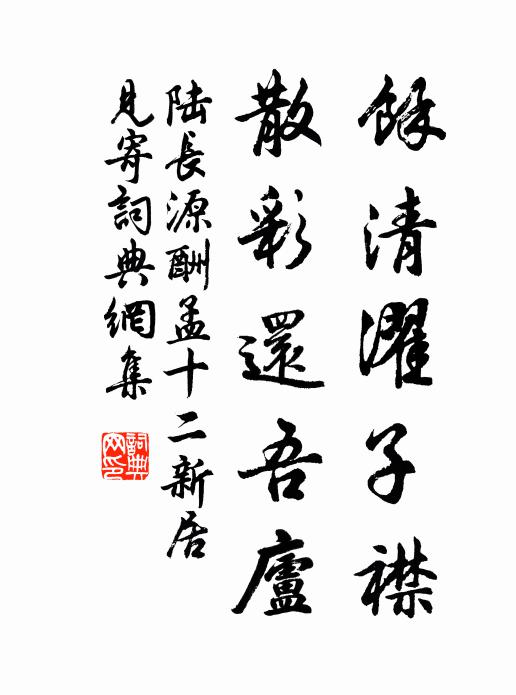 餘清濯子襟
散彩還吾廬
陸長源酬孟十二新居
見寄詞典網集
詞典
网印